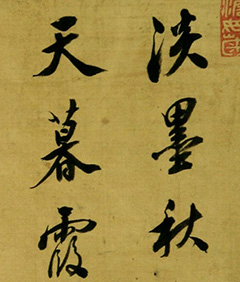 淡墨秋
天暮霞